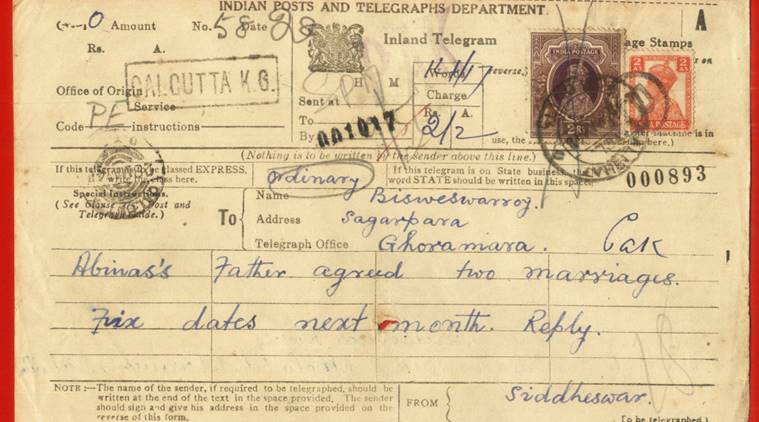 INDIAN POSTS AND TELEGRAPHS DEPARTMENT.
0 Amount No. 58 Date 28
Rs. A.
Inland Telegram
A
age Stamps
on
CALCUTTA K.G.
Office of Origin
Service
PE
Code Instructions
H M
Sent at
To
By
001017
Charge
Rs. A.
2/2
reverse.
INDIA POSTAGE
2
2 AS
AS
POSTAGE
use, the
is in
(Nothing is to be written by the sender above this line.)
If this telegram to be classed EXPRESS,
here.
Special Instructions.
(See Clause Post and
Telegraph Guide.)
ordinary
If this telegram is on State business,
word STATE should be written in this space.
000893
To
Name Bisweswarroy.
Address Sagarpara
Telegraph Office Ghoramara. Cak
Abinas's Father agreed two marriages.
Fix dates next month. Reply.
18
NOTE:—The name of the sender, if required to be telegraphed, should be
written at the end of the text in the space provided. The sender
should sign and give his address in the space provided on the
reverse of this form.
FROM
Siddheswar.
(To be telegraphed.)